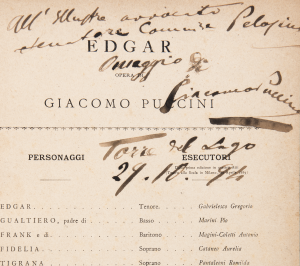 All' Illustre avvocato
EDGAR
Omaggio di
OPERA DI
Giacomo Puccini
GIACOMO PUCCINI
PERSONAGGI
ESECUTORI
Torre del Lago
EDGAR
Tenore.
Gabrielesco Gregorio
GUALTIERO, padre di
Basso
Marini Pio
FRANK e di
Baritono
Magini-Coletti Antonio
FIDELIA
Soprano
Cataneo Aurelia
TIGRANA
Soprano
Pantaleoni Romilda